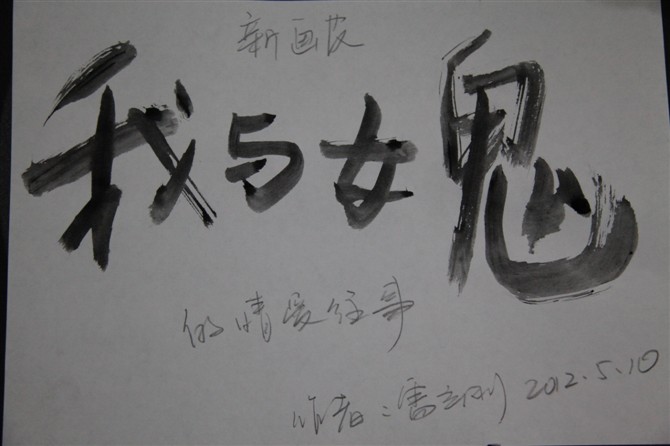 新画皮
我与女鬼
的情爱往事
作者:潘立刚 2012.5.10